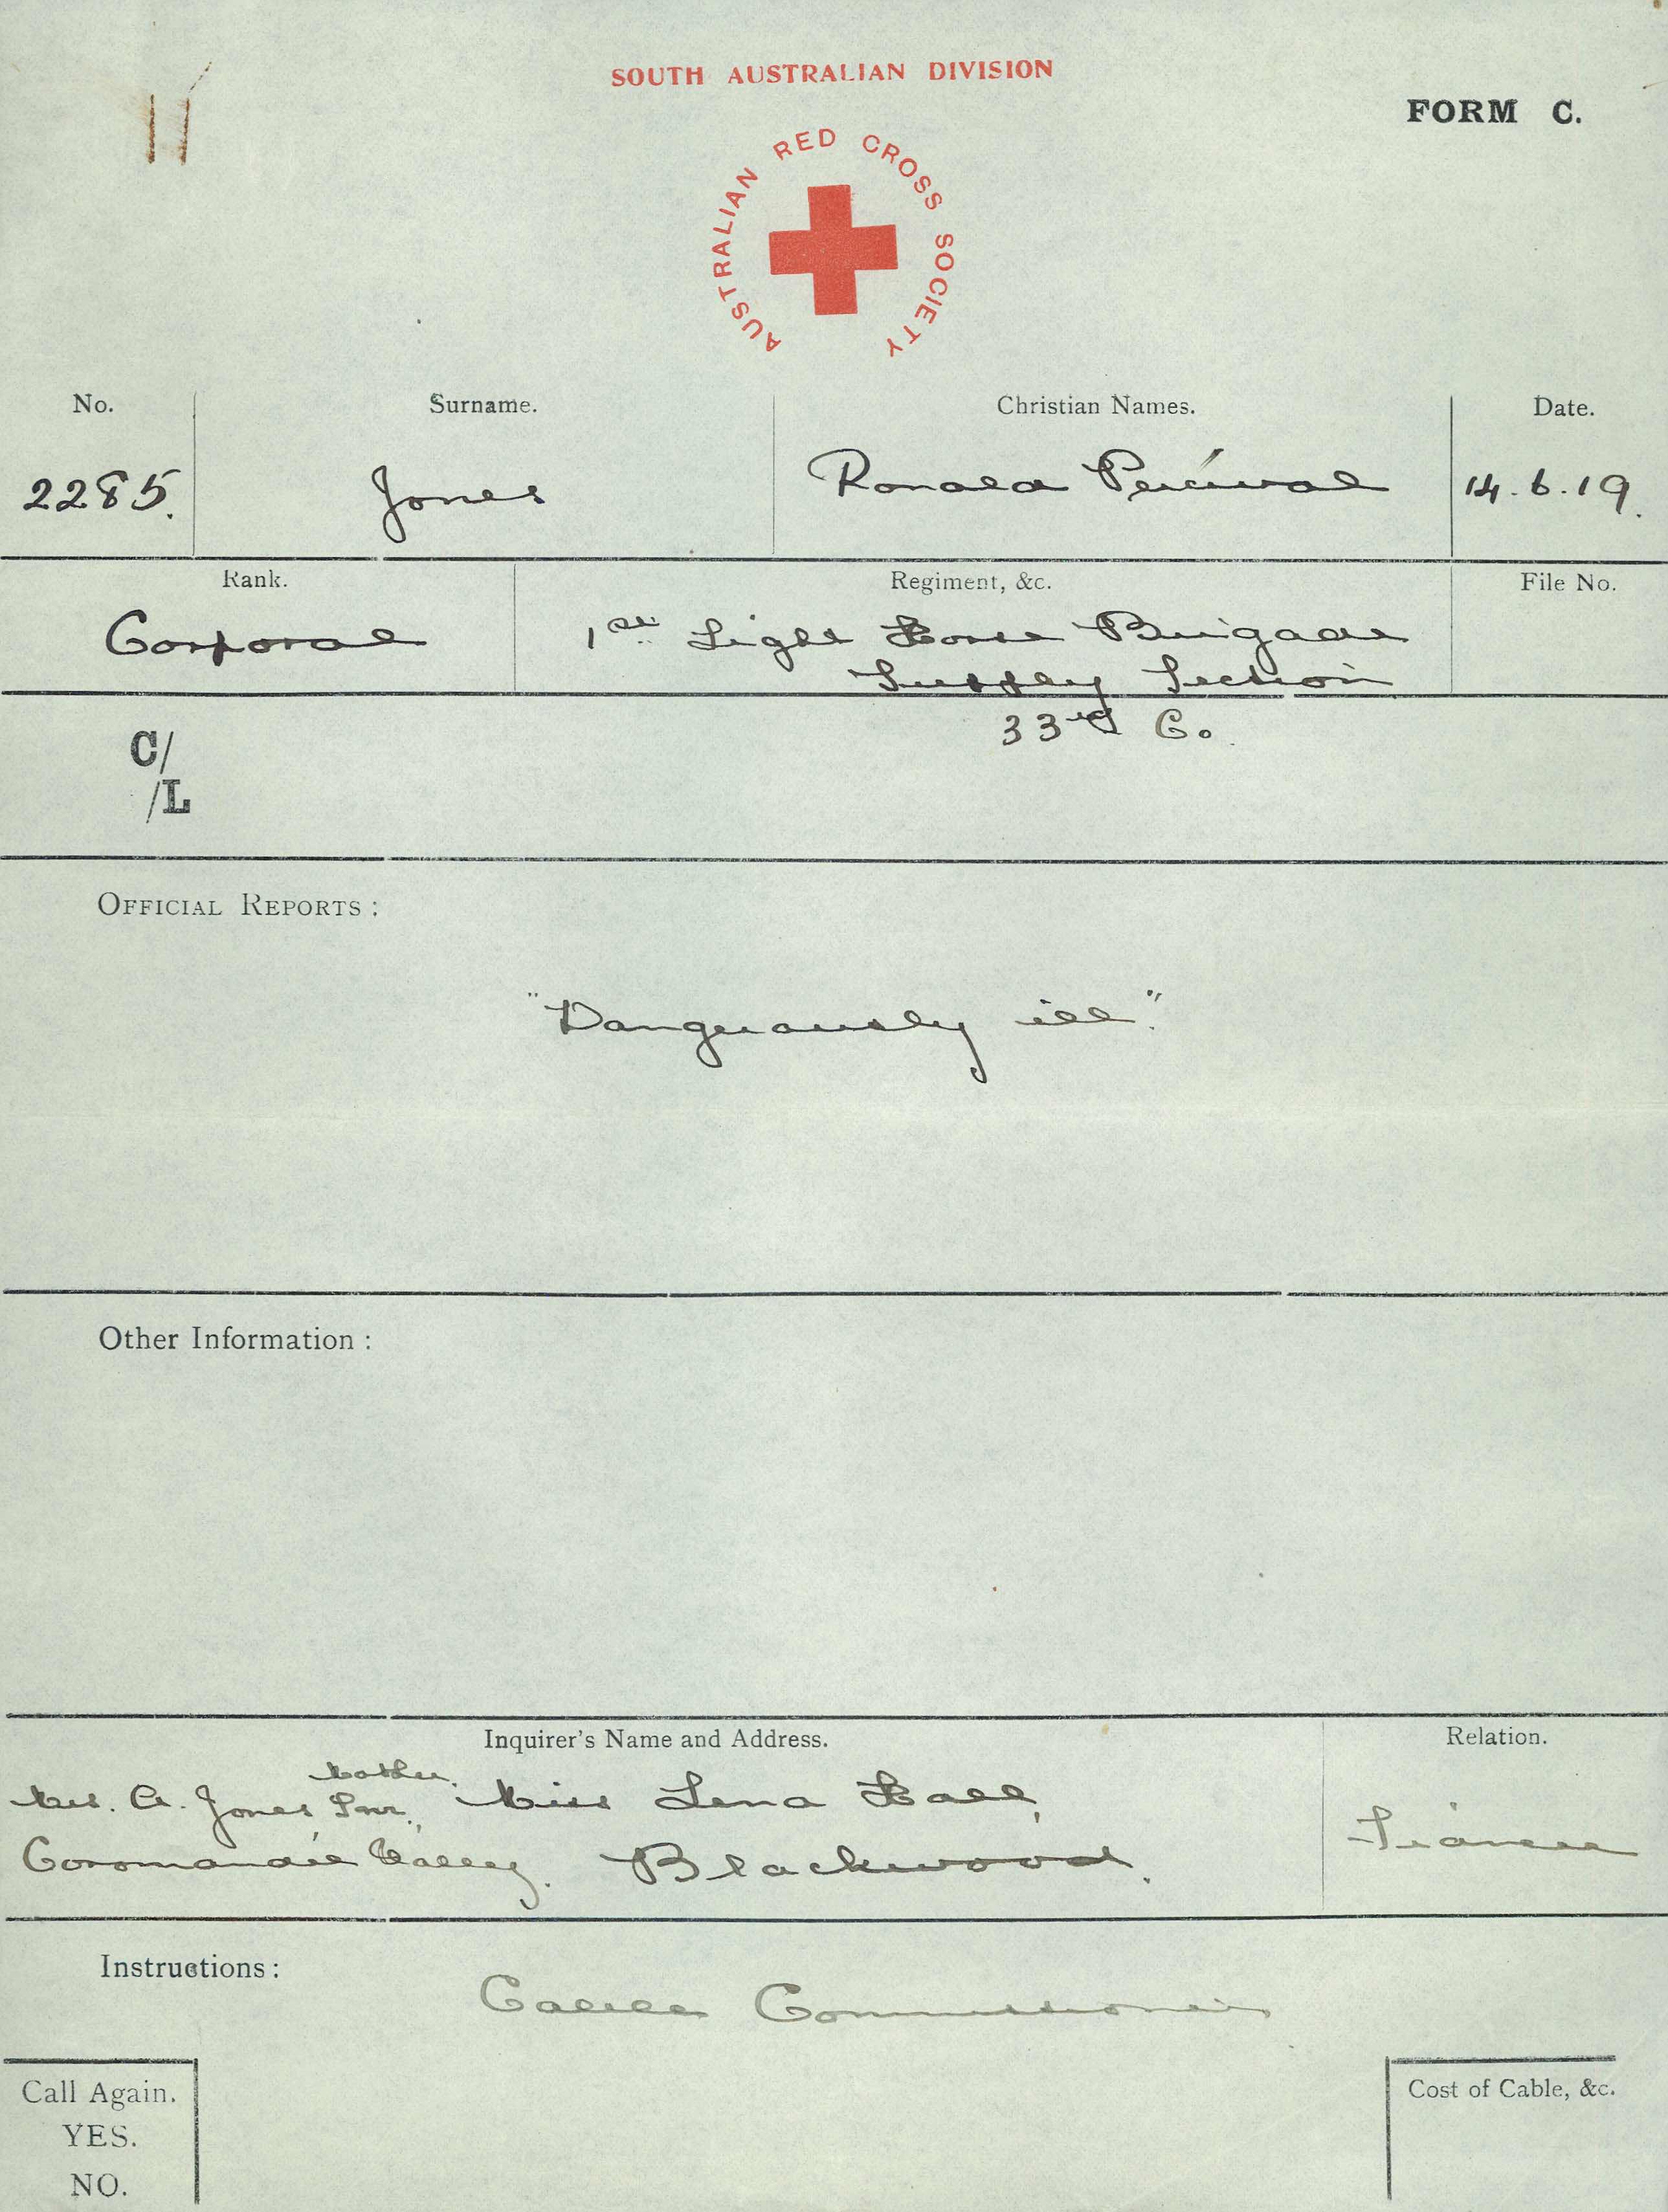 SOUTH AUSTRALIAN DIVISION
FORM C.
AUSTRALIAN RED CROSS SOCIETY
No. Surname. Christian Names. Date.
2285. Jones Ronald Percival 14.6.19.
Rank. Regiment, &c. File No.
Corporal 1st Light Horse Brigade
Supply Section
33rd Co.
C/
/L
OFFICIAL REPORTS:
"Dangerously ill."
Other Information:
Inquirer's Name and Address. Relation.
Mother.
Mrs. A. Jones Snr. Miss Lena Hall,
Coromandel Valley. Blackwood. Fiancee
Instructions:
Cable Commissioner
Call Again.
YES.
NO.
Cost of Cable, &c.